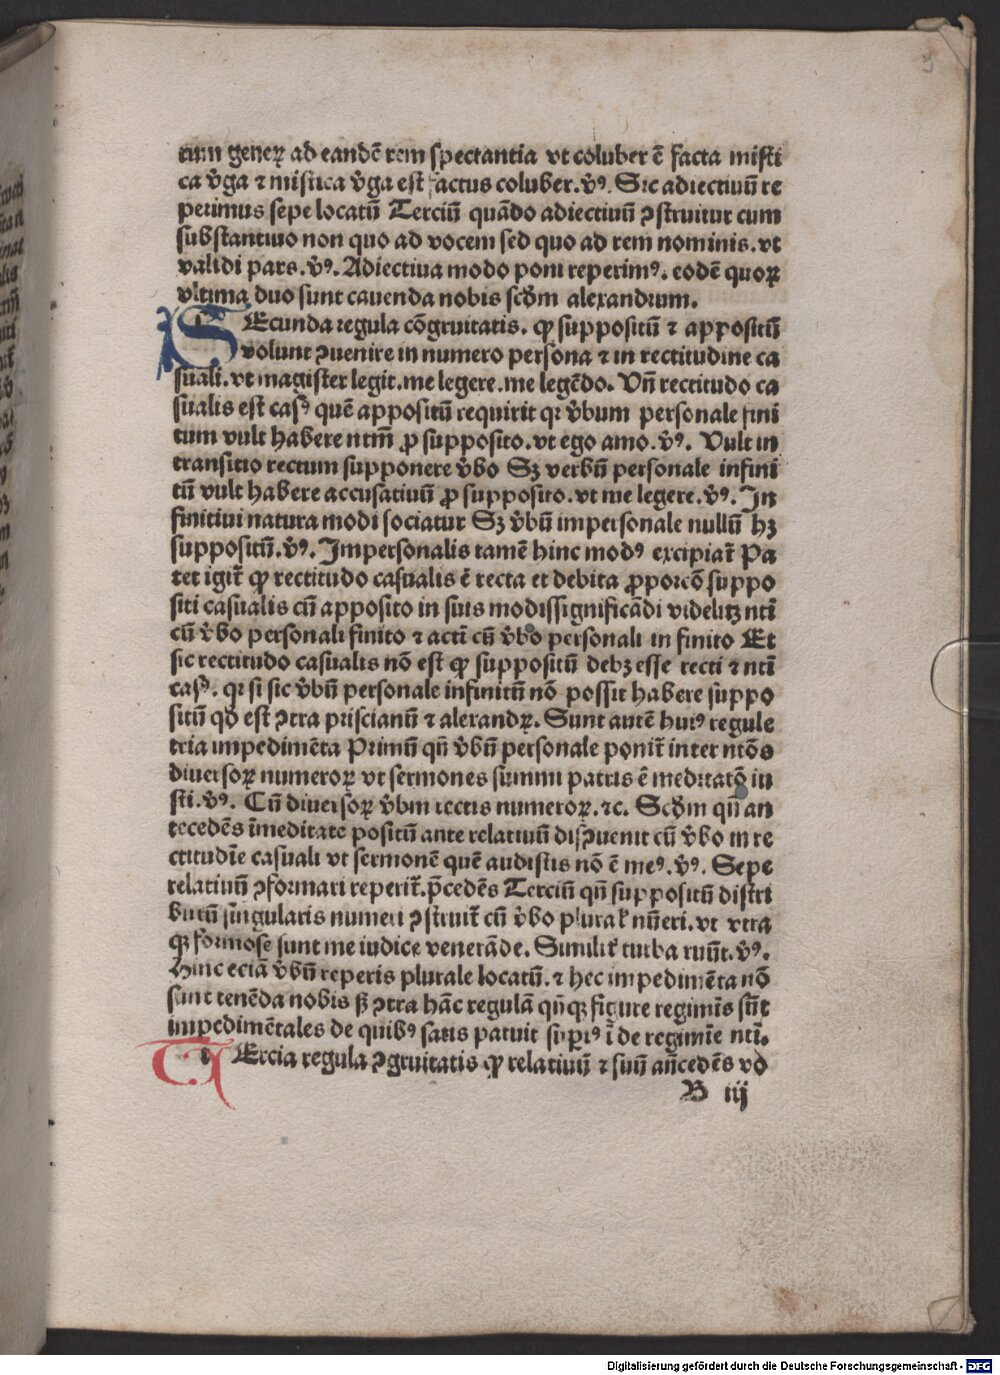 tum generꝝ ad eandē rem spectantia vt coluber ē facta misti
ca v̓ga ⁊ mistica v̓ga est factus coluber. v̓ꝰ. Sic adiectiuū re
perimus sepe locatū Terciū quādo adiectiuū ꝯstruitur cum
substantiuo non quo ad vocem sed quo ad rem nominis. vt
validi pars. v̓ꝰ. Adiectiua modo poni reperimꝰ. eodē quoꝝ
vltima duo sunt cauenda nobis scd̓m alexandrum.
SEcunda regula cōgruitatis. ꝙ suppositū ⁊ appositū
volunt ꝯuenire in numero persona ⁊ in rectitudine ca
suali. vt magister legit. me legere. me legēdo. Vn̄ rectitudo ca
sualis est casꝰ quē appositū requirit qr v̓bum personale fini
tum vult habere ntm̄ ꝓ supposito. vt ego amo. v̓ꝰ. Vult in
transitio rectum supponere v̓bo Sꝫ verbū personale infini
tū vult habere accusatiuū ꝓ supposito. vt me legere. v̓ꝰ. In
finitiui natura modi sociatur Sꝫ v̓bū impersonale nullū hꝫ
suppositū. v̓ꝰ. Impersonalis tamē hinc modꝰ excipiat̄ Pa
tet igit̄ ꝙ rectitudo casualis ē recta et debita ꝓporcō suppo
siti casualis cū apposito in suis modis significādi videlitꝫ ntī
cū v̓bo personali finito ⁊ actī cū v̓bo personali in finito Et
sic rectitudo casualis nō est ꝙ suppositū debꝫ esse recti ⁊ ntī
casꝰ. qr si sic v̓bū personale infinitū nō possit habere suppo
sitū qd̓ est ꝯtra priscianū ⁊ alexandꝝ. Sunt autē huiꝰ regule
tria impedimēta Primū qn̄ v̓bū personale ponit̄ inter ntōs
diuersoꝝ numeroꝝ vt sermones summi patris ē meditatō iu
sti. v̓ꝰ. Cū diuersoꝝ v̓bm rectis numeroꝝ. ⁊c. Scd̓m qn̄ an
tecedēs īmeditate positū ante relatiuū disꝯuenit cū v̓bo in re
ctitudīe casuali vt sermonē quē audistis nō ē meꝰ. v̓ꝰ. Sepe
relatiuū ꝯformari reperit̄. p̄cedēs Terciū qn̄ suppositū distri
butū singularis numeri ꝯstruit̄ cū v̓bo pluralꝭ nūeri. vt vtra
qꝫ formose sunt me iudice venerāde. Similit̄ turba ruūt. v̓ꝰ.
Hinc eciā v̓bū reperis plurale locatū. ⁊ hec impedimēta nō
sunt tenēda nobis ꝭ ꝯtra hāc regulā qn̄qꝫ figure regimīs sūt
impedimētales de quibꝰ satis patuit supīꝰ ī de regimīe ntī.
TErcia regula ꝯgruitatis ꝙ relatiuū ⁊ suū an̄cedēs vo
B iij
Digitalisierung gefördert durch die Deutsche Forschungsgemeinschaft - DFG